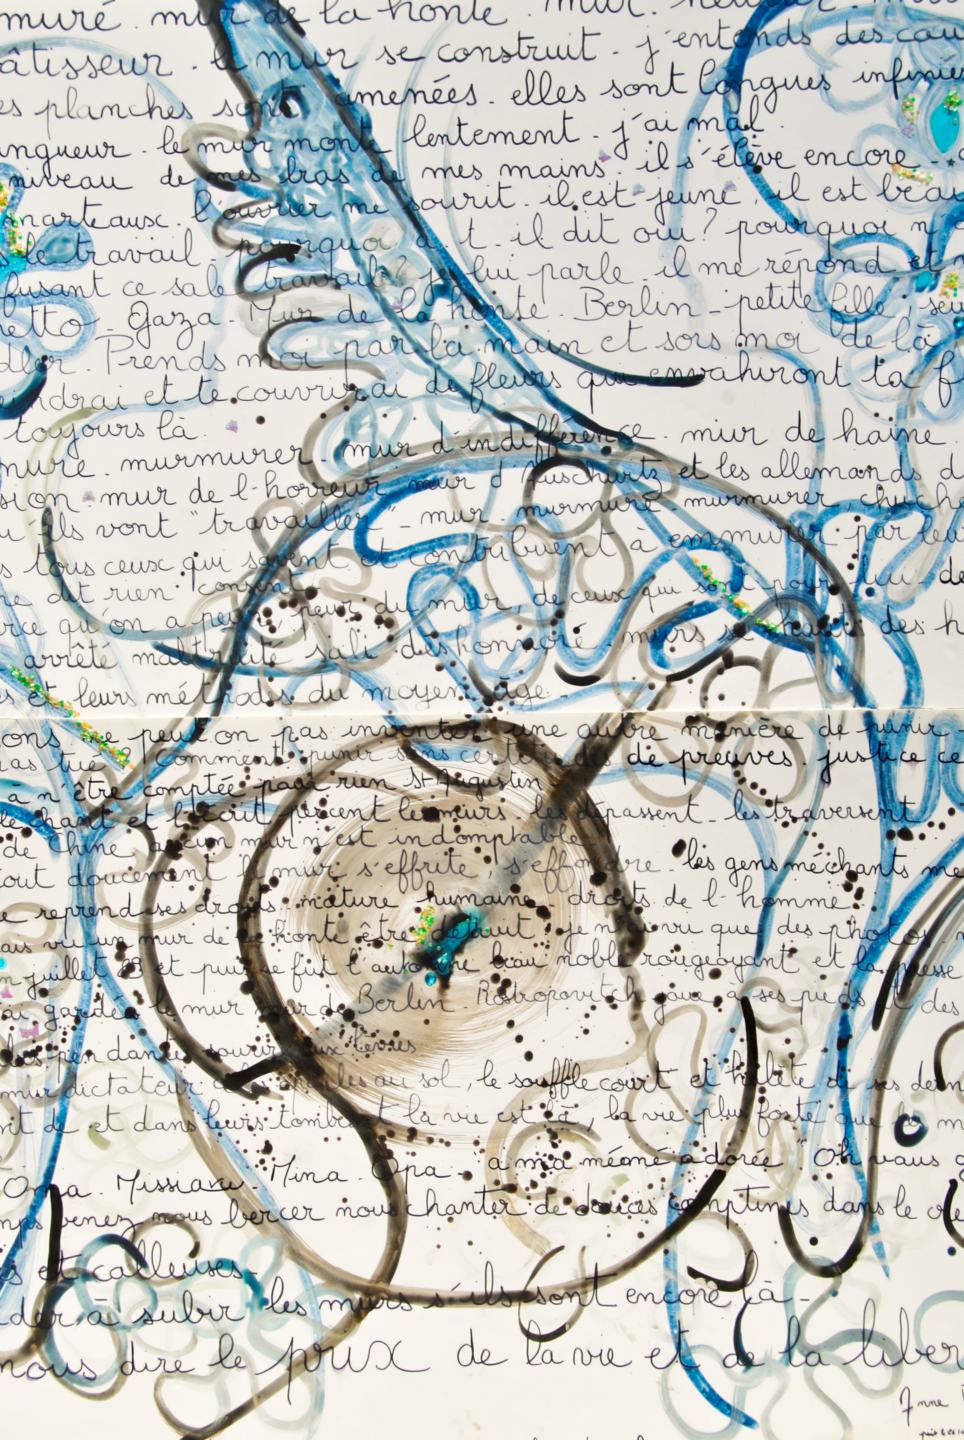 muré. mur de la honte. mur.
âtisseur. le mur se construit. j'entends des cou
es planches sont amenées. elles sont longues infinies
ngueur. le mur monte lentement. j'ai mal.
niveau de mes bras de mes mains. il s'élève encore.
marteaux. l'ouvrier me sourit. il est jeune, il est beau
le travail. pourquoi a-t-il dit oui? pourquoi n
fusant ce sale travail? je lui parle. il me répond et
etto. Gaza. Mur de la honte. Berlin - petite fille, seu
dler. Prends moi par la main et sors moi de là
endrai et te couvrirai de fleurs qui envahiront ta f
toujours là.
muré. murmurer. mur d'indifférence. mur de haine.
sion. mur de l'horreur mur d'Auschwitz et les allemands d
ù ils vont "travailler". mur murmuré. murmurer, chucho
s tous ceux qui savent et contribuent à emmurer par leur
ne dit rien "consent"
rce qu'on a peur. peur du mur de ceux qui sont pour lui. de
arrêté maltraité sali déshonoré. murs se des h
s et leurs méthodes du moyen âge.
ons, ne peut on pas inventer une autre manière de punir -
as tué? Comment punir sans certitude de preuves. justice ce
à n'être comptée pour rien St Augustin
le chant et l'écrit percent les murs. les dépassent. les traversent
de Chine. aucun mur n'est indomptable
tout doucement le mur s'effrite, s'effondre. les gens méchants me
e reprend ses droits. nature humaine droits de l'homme
ais vu un mur de la honte être détruit. je n'ai vu que des photos.
n juillet 89 et puis se fut l'automne beau noble rougeoyant et la presse
ai gardé le mur mur de Berlin. Rostropovitch joua à ses pieds et des
les pendantes sourire aux lèvres
mur dictateur a les épaules au sol, le souffle court et halète de ses dern
nt de et dans leurs tombes. la vie est là, la vie plus forte que la m
Oma. Missiau Mina. Opa. à ma mémé adorée "Oh vous
mps venez nous bercer nous chanter de douces comptines dans le cre
s et calleuses.
der à subir les murs s'ils sont encore là.
nous dire le prix de la vie et de la liber
Anne